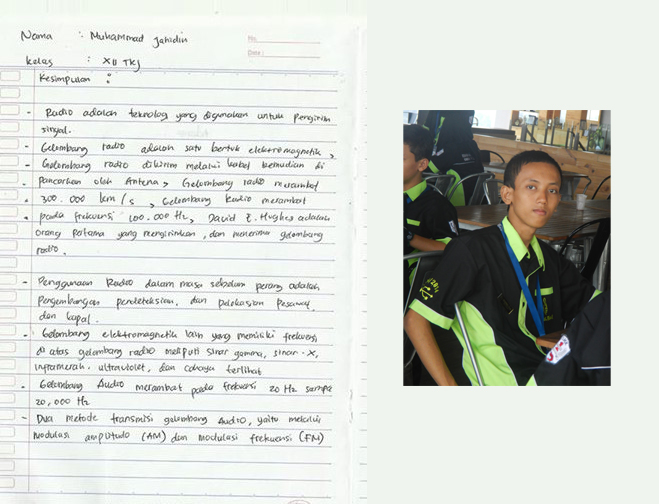 Nama : Muhammad Jahidin
No.
Date :
Kelas : XII TKJ
Kesimpulan :
- Radio adalah teknologi yang digunakan untuk pengirim
sinyal.
- Gelombang radio adalah satu bentuk elektromagnetik,
- Gelombang radio dikirim melalui kabel kemudian di
- pancarkan oleh Antena, Gelombang radio merambat
- 300.000 km/s, Gelombang Radio merambat
- pada frekuensi 100.000 Hz, David E. Hughes adalah
orang pertama yang mengirimkan, dan menerima gelombang
radio.
- Penggunaan Radio dalam masa sebelum perang adalah
Pengembangan pendeteksian, dan pelokasian Pesawat,
dan kapal.
- Gelombang elektromagnetik lain yang memiliki frekuensi
di atas gelombang radio meliputi sinar gamma, sinar-X,
inframerah, ultraviolet, dan cahaya terlihat
- Gelombang Audio merambat pada frekuensi 20 Hz sampai
20,000 Hz
- Dua metode transmisi gelombang Audio, yaitu melalui
Modulasi amplitudo (AM) dan modulasi frekuensi (FM)